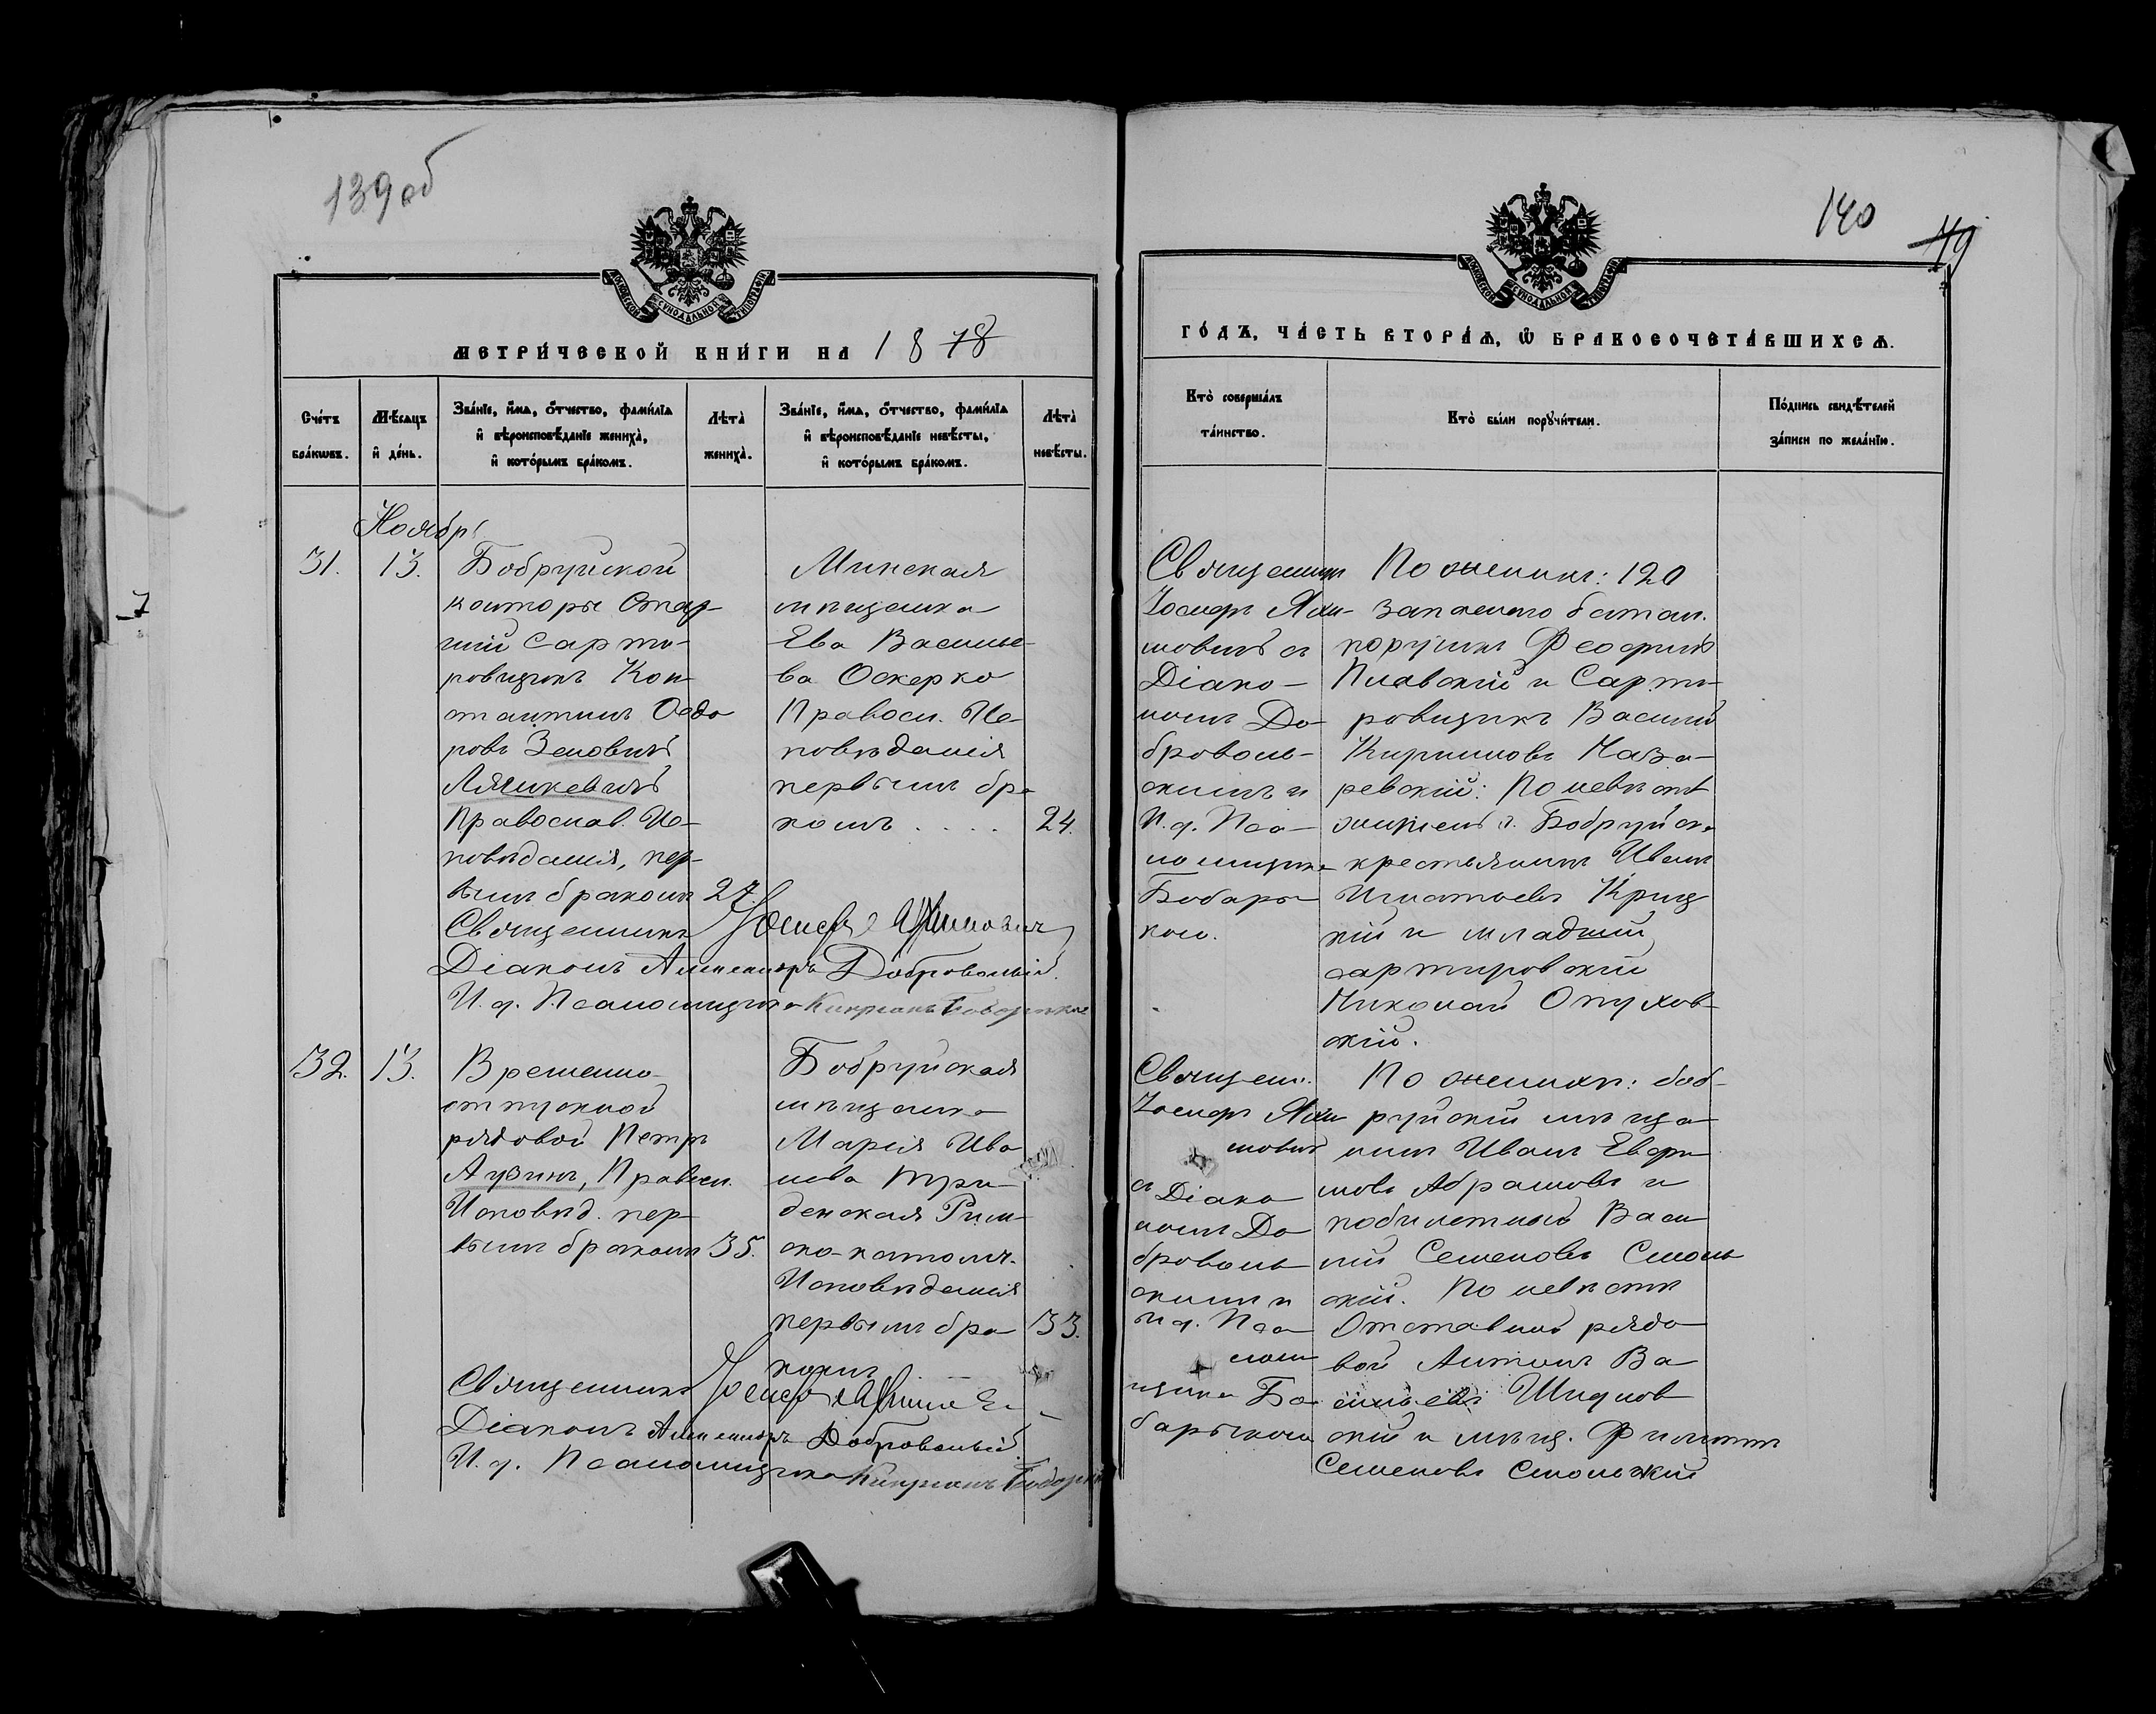 139 об
МОСКОВСКОЙ СѴНОДАЛЬНОЙ ТИПОГРАФІИ
МЕТРИ́ЧЕСКОЙ КНИ́ГИ НА 1878
Сче́тъ бра́кѡвъ.
Мѣ́сяцъ и҆ де́нь.
Зва́нїе, и҆́мѧ, ѻ҆́тчество, фами́лїѧ и҆ вѣроисповѣ́данїе жениха̀, и҆ кото́рымъ бра́комъ.
Лѣта̀ жениха̀.
Зва́нїе, и҆́мѧ, ѻ҆́тчество, фами́лїѧ и҆ вѣроисповѣ́данїе невѣ́сты, и҆ кото́рымъ бра́комъ.
Лѣта̀ невѣ́сты.
Ноябрь
31.
13.
Бобруйской
конторы Стар-
шій Сорти-
ровщикъ Кон-
стантинъ Ѳедо
ровъ Зеновичъ
Лячкевичъ
Православ. Ис-
повѣданія, пер-
вымъ бракомъ
27.
Минская
мѣщанка
Ева Василье-
ва Оскерко
Правосл. Ис-
повѣданія
первымъ бра
комъ . . . .
24.
Священникъ Іосифъ Яхимовичъ
Діаконъ Александръ Добровольскій.
И. д. Псаломщика Кипріанъ
32.
13.
Временно-
отпускной
рядовой Петръ
Аузинъ, Правосл.
Исповѣд. пер-
вымъ бракомъ
35.
Бобруйская
мѣщанка
Марія Ива
нова
денская Рим-
ско-католич.
Исповѣданія
первымъ бра
комъ
33.
Священникъ Іосифъ
Діаконъ Александръ Добровольскій
И. д. Псаломщика Кипріанъ
140
МОСКОВСКОЙ СѴНОДАЛЬНОЙ ТИПОГРАФІИ
ГО́ДЪ, ЧА́СТЬ ВТОРА́Ѧ, Ѡ҆ БРАКОСОЧЕТА́ВШИХСѦ.
Кто̀ соверша́лъ та́инство.
Кто̀ бы́ли порꙋчи́тели.
По́дпись свидѣ́телей за́писи по жела́нїю.
Священникъ
Іосифъ Яхи-
мовичъ съ
Діако-
номъ До-
броволь-
скимъ и
И. д. Пса-
ломщика
Бобары
кою.
По женихѣ: 120
запаснаго батал.
поручикъ Ѳеофилъ
Пиавскій и Сорти-
ровщикъ Василій
Кирилловъ Наза-
ревскій: По невѣстѣ
жители г. Бобруйска
крестьянинъ Иванъ
Игнатьевъ Криц
кій и младшій
сортировскій
Николай Опухов-
скій.
Священ.
Іосифъ Яхи
мовичъ
съ Діако
номъ До
броволь
скимъ и
И д. Пса
лом
щика Бо
барыкою
По женихѣ: боб-
руйскій мѣща
нинъ Иванъ
Абрамовъ и
побилетный Васи
лій Семеновъ Смоль
скій. По невѣстѣ
Отставной рядо
вой Антонъ Ва
сильевъ
скій и мѣщ. Филиппъ
Семеновъ Смольскій